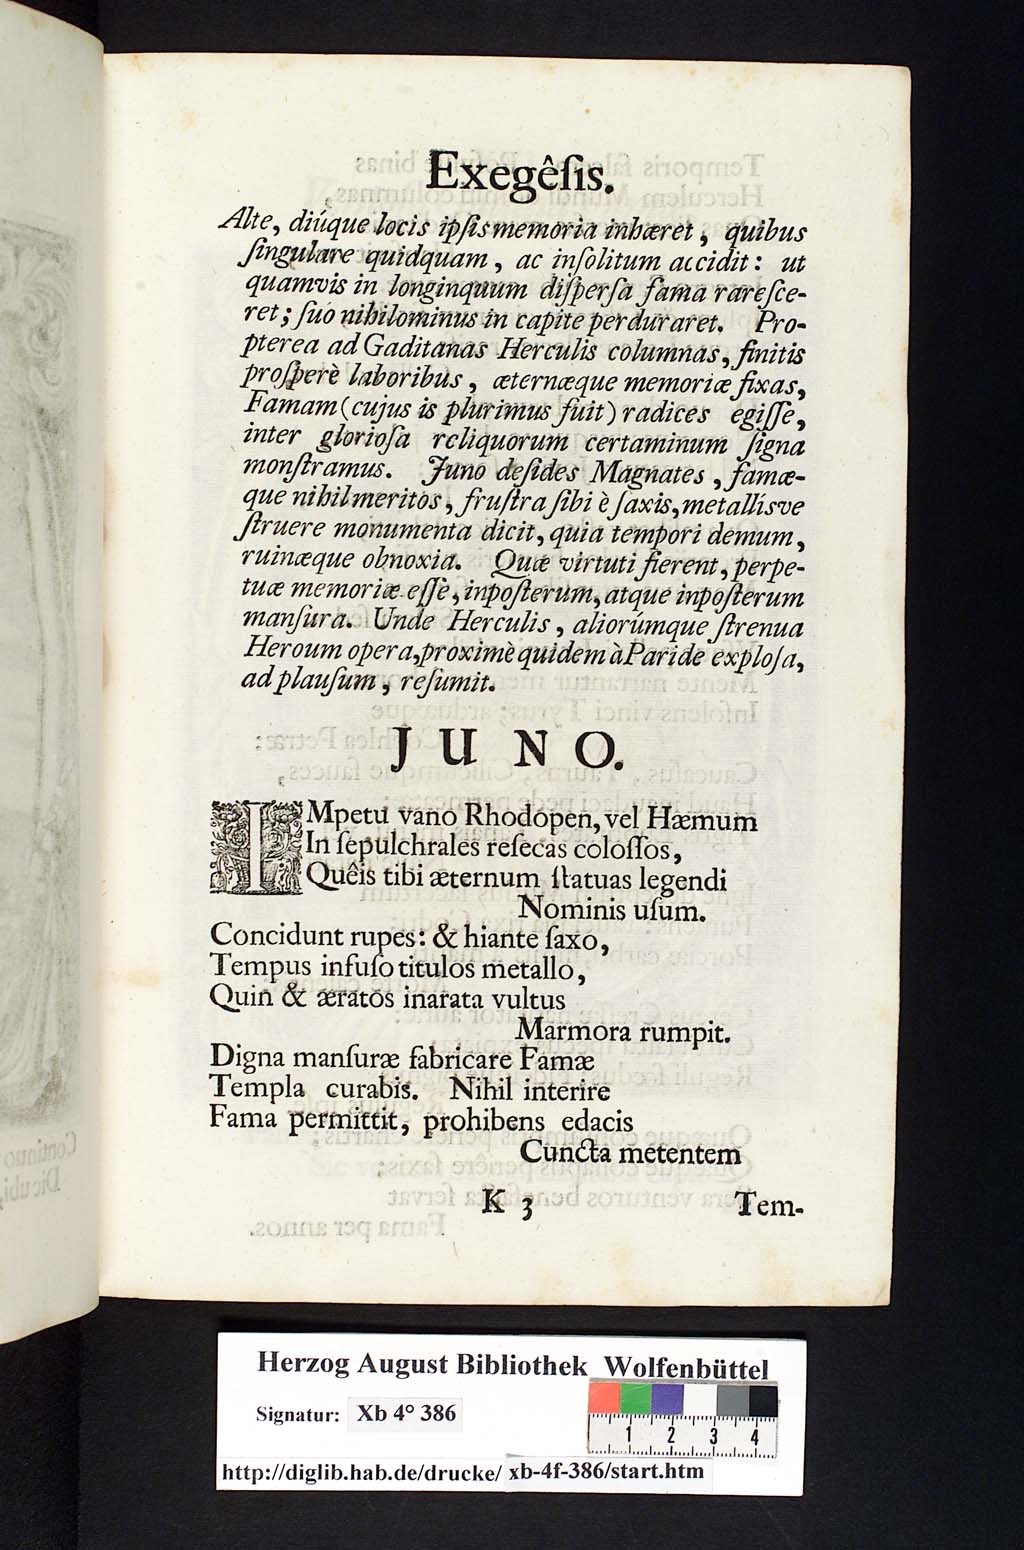 Exegêſis.
Alte, diúque locis ipſis memoria inhæret, quibus
ſingulare quidquam, ac inſolitum accidit: ut
quamvis in longinquum diſperſa fama rareſce-
ret; ſuo nihilominus in capite perduraret. Pro-
pterea ad Gaditanas Herculis columnas, finitis
proſperè laboribus, æternæque memoriæ fixas,
Famam (cujus is plurimus fuit) radices egiſſe,
inter glorioſa reliquorum certaminum ſigna
monſtramus. Juno deſides Magnates, famæ-
que nihil meritos, fruſtra ſibi è ſaxis, metallísve
ſtruere monumenta dicit, quia tempori demum,
ruinæque obnoxia. Quæ virtuti fierent, perpe-
tuæ memoriæ eſſè, inpoſterum, atque inpoſterum
manſura. Unde Herculis, aliorúmque ſtrenua
Heroum opera, proximè quidem à Paride exploſa,
ad plauſum, reſumit.
JUNO.
IMpetu vano Rhodopen, vel Hæmum
In ſepulchrales reſecas coloſſos,
Quêis tibi æternum ſtatuas legendi
Nominis uſum.
Concidunt rupes: & hiante ſaxo,
Tempus infuſo titulos metallo,
Quin & æratos inarata vultus
Marmora rumpit.
Digna manſuræ fabricare Famæ
Templa curabis. Nihil interire
Fama permittit, prohibens edacis
Cuncta metentem
K 3 Tem-
Continuo
Dic ubi,
Herzog August Bibliothek Wolfenbüttel
Signatur: Xb 4° 386
1 2 3 4
http://diglib.hab.de/drucke/ xb-4f-386/start.htm